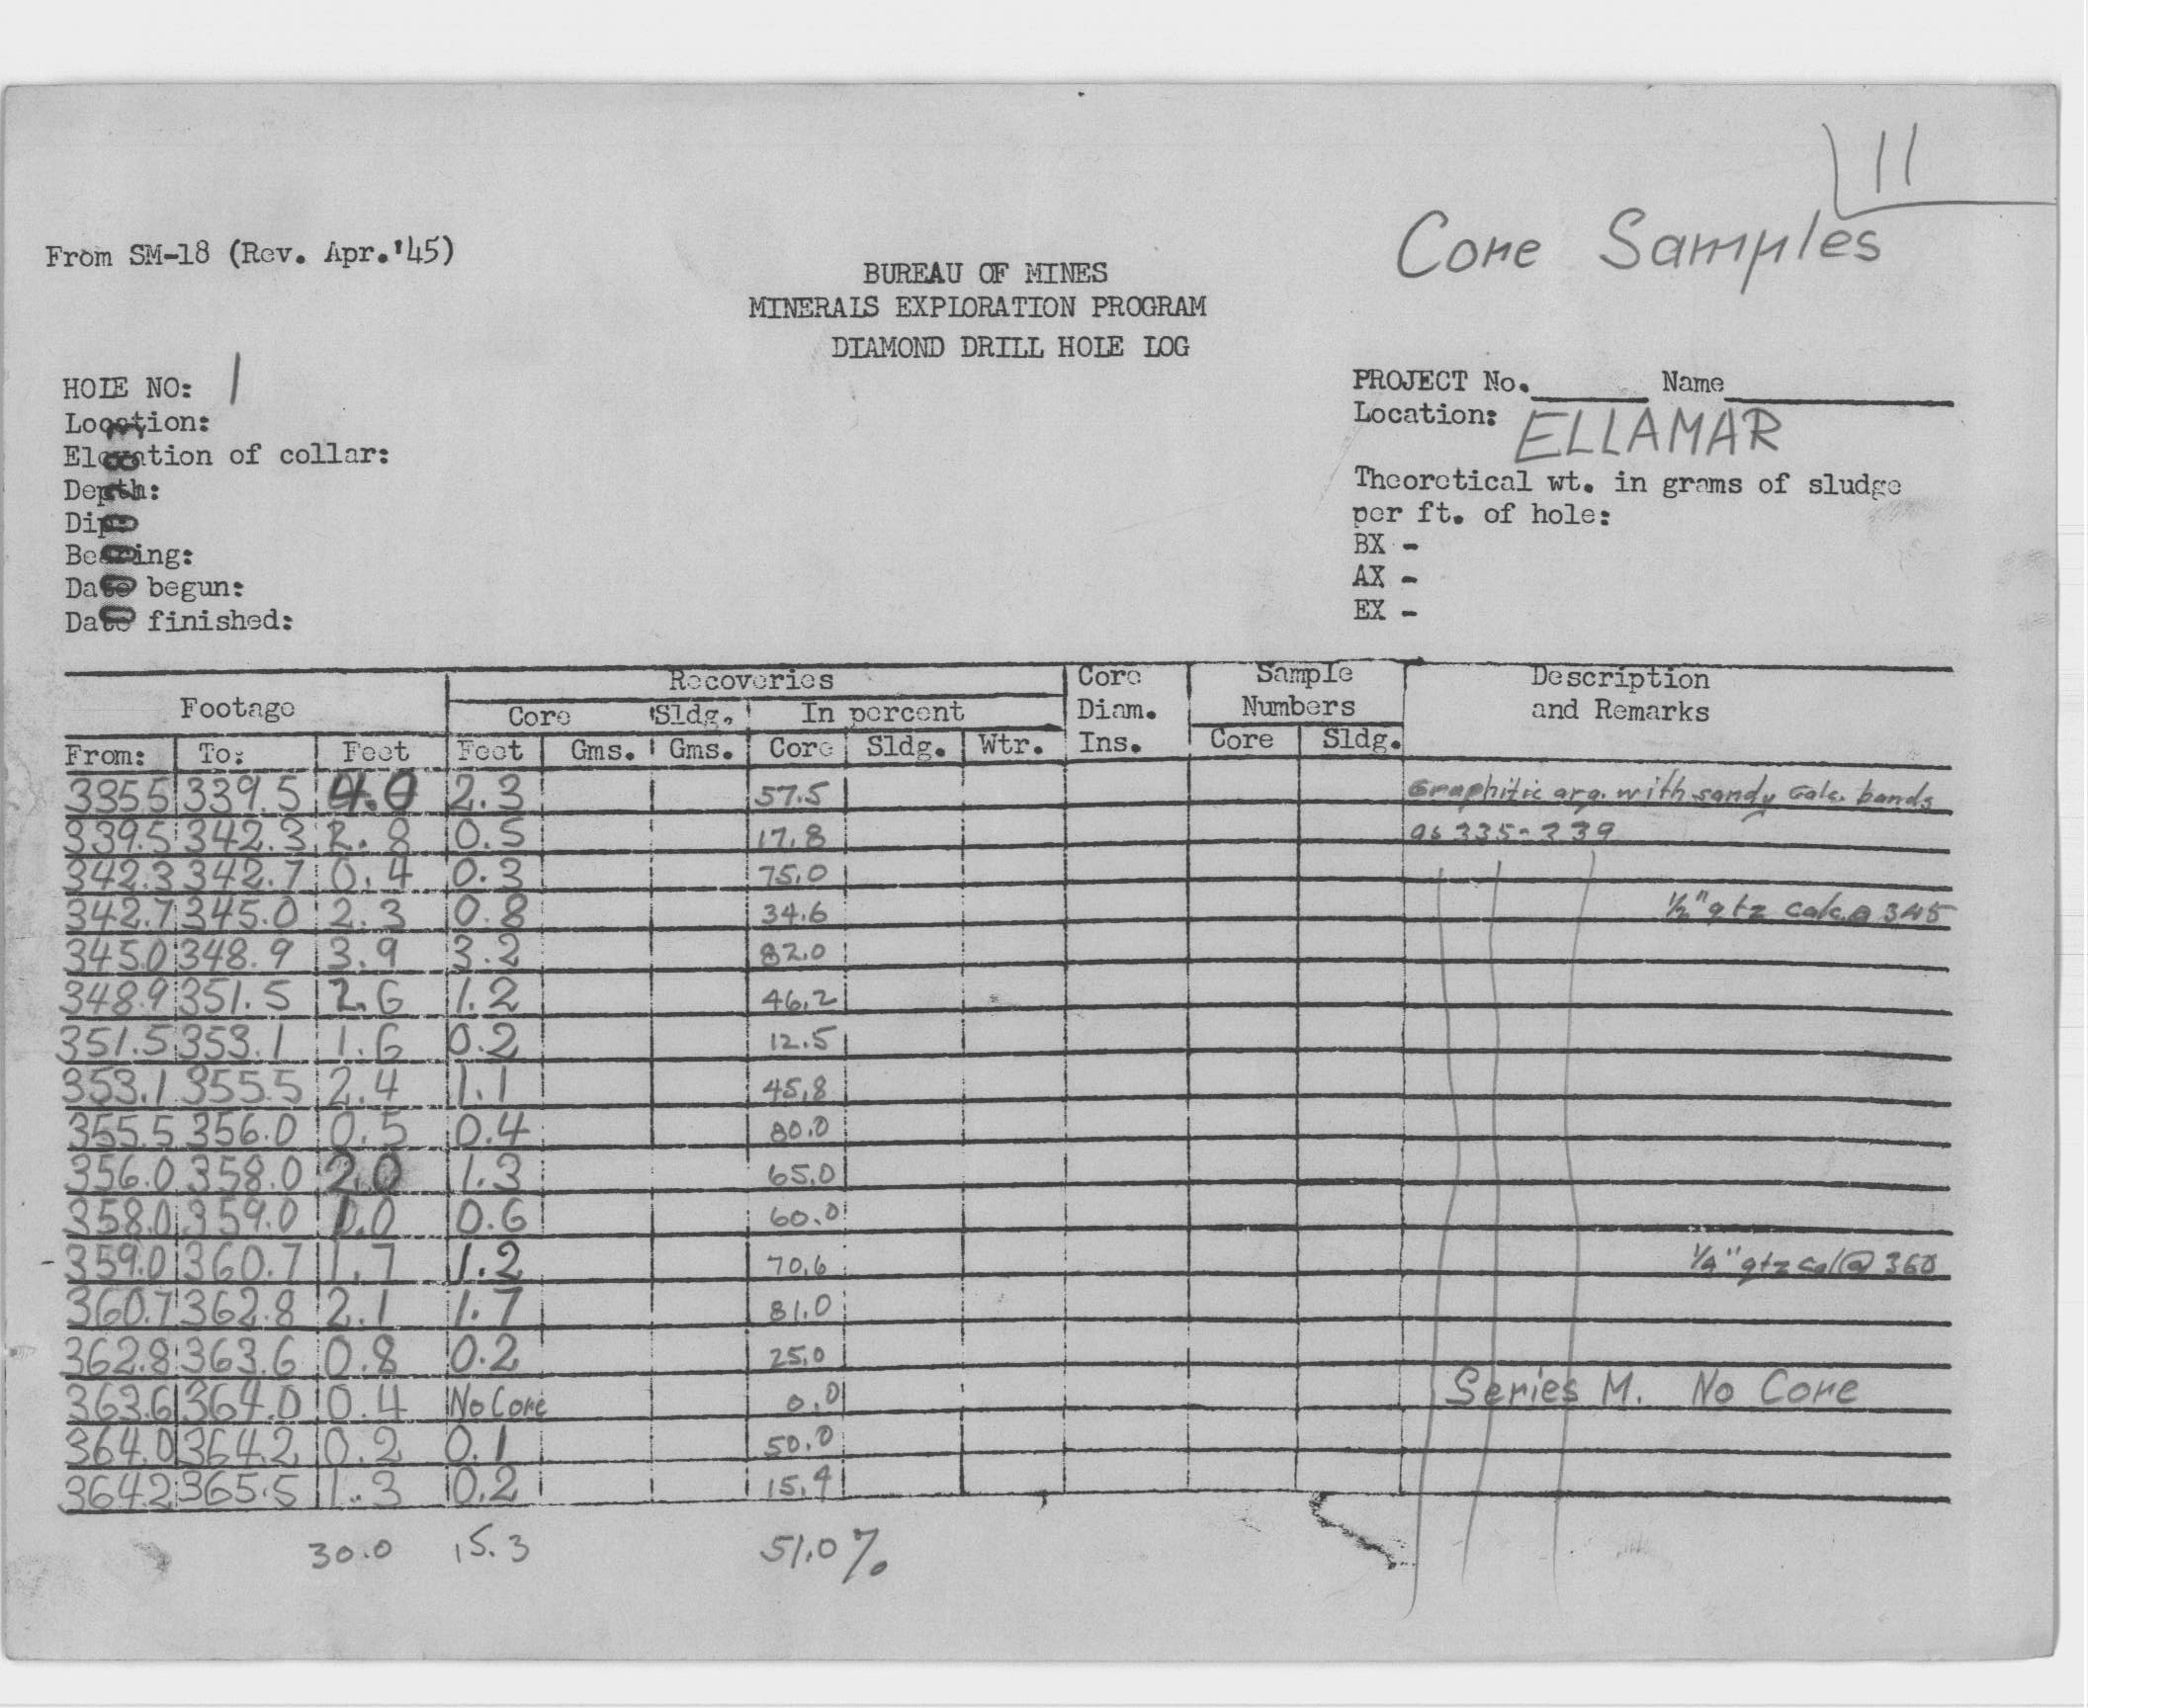 11
Core Samples
From SM-18 (Rev. Apr.'45)
BUREAU OF MINES
MINERALS EXPLORATION PROGRAM
DIAMOND DRILL HOLE LOG
HOLE NO: 1
Location:
Elevation of collar:
Depth:
Dip:
Bearing:
Date begun:
Date finished:
PROJECT No. Name
Location: ELLAMAR
Theoretical wt. in grams of sludge
per ft. of hole:
BX -
AX -
EX -
Footage Recoveries Core Diam. Ins. Sample Numbers Description and Remarks
Core Sldg. In percent
From: To: Feet Feet Gms. Gms. Core Sldg. Wtr. Core Sldg.
335.5 339.5 4.0 2.3 57.5 Graphitic arg. with sandy calc. bands
339.5 342.3 2.8 0.5 17.8 as 335-339
342.3 342.7 0.4 0.3 75.0
342.7 345.0 2.3 0.8 34.6 1/2" qtz calc @ 345
345.0 348.9 3.9 3.2 82.0
348.9 351.5 2.6 1.2 46.2
351.5 353.1 1.6 0.2 12.5
353.1 355.5 2.4 1.1 45.8
355.5 356.0 0.5 0.4 80.0
356.0 358.0 2.0 1.3 65.0
358.0 359.0 1.0 0.6 60.0
359.0 360.7 1.7 1.2 70.6 1/4" qtz cal @ 360
360.7 362.8 2.1 1.7 81.0
362.8 363.6 0.8 0.2 25.0
363.6 364.0 0.4 No Core 0.0 Series M. No Core
364.0 364.2 0.2 0.1 50.0
364.2 365.5 1.3 0.2 15.4
30.0 15.3 51.0%